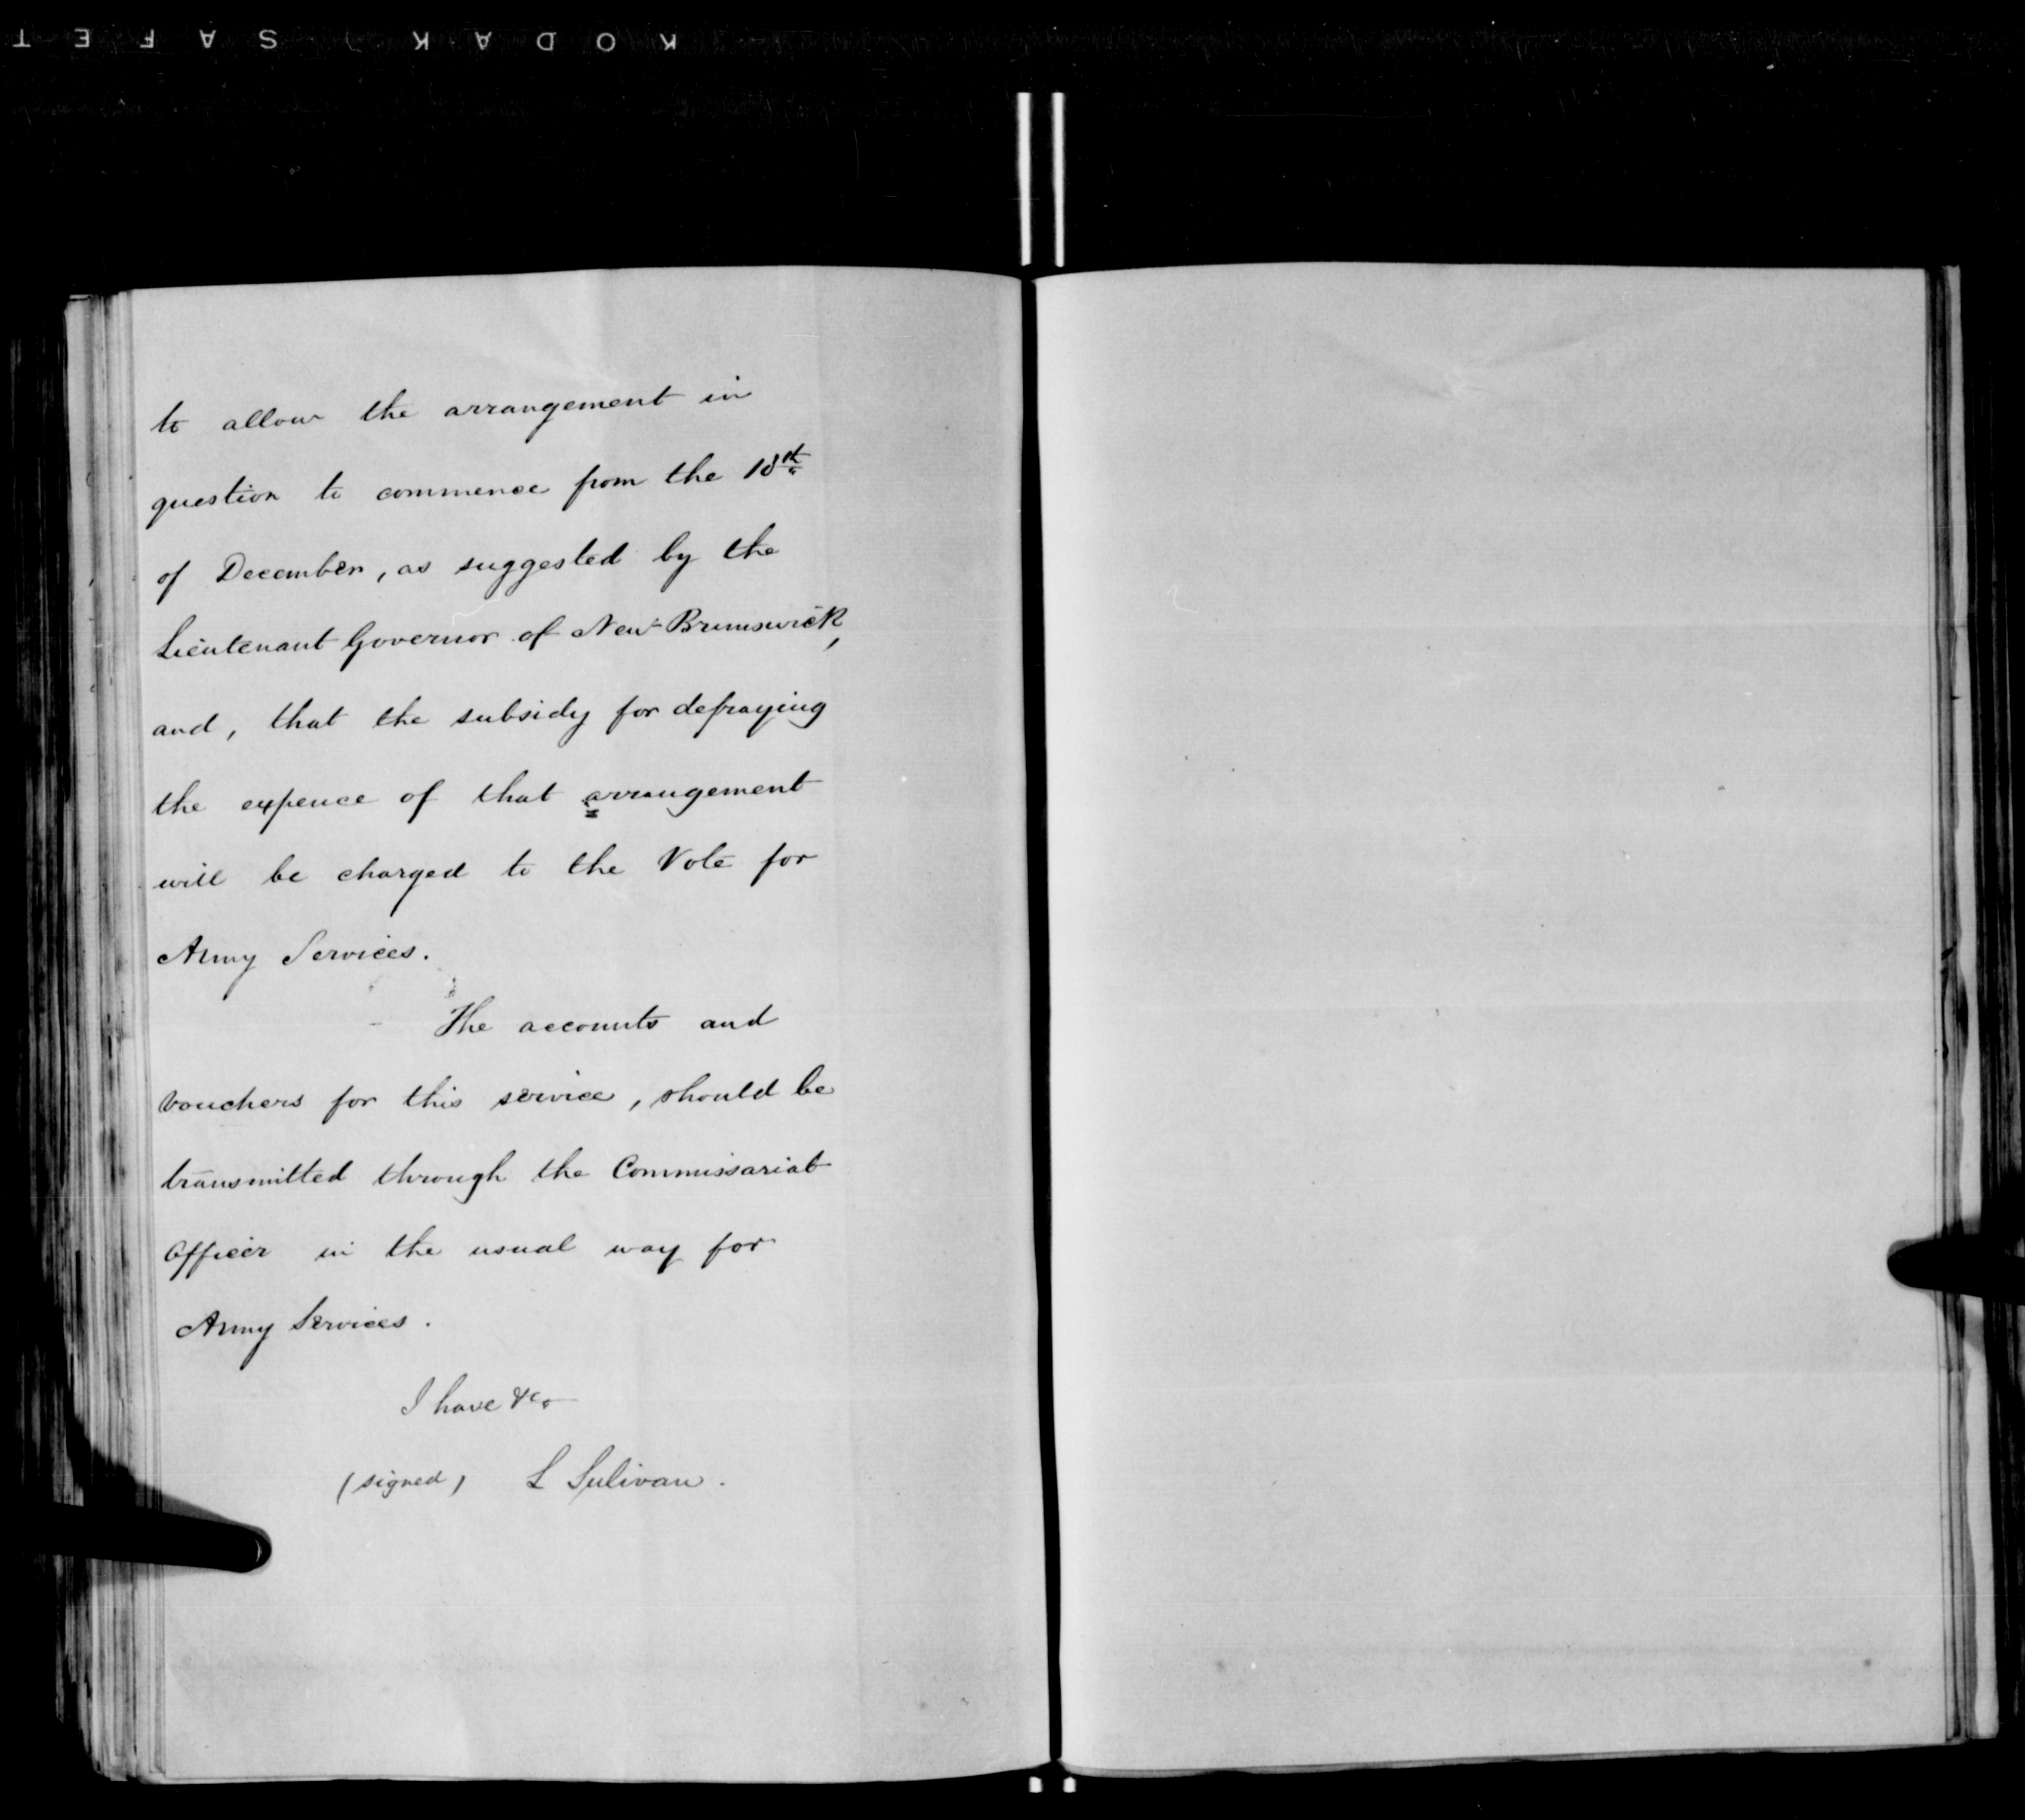 KODAK SAFET
to allow the arrangement in
question to commence from the 18th
of December, as suggested by the
Lieutenant Governor of New Brunswick,
and, that the subsidy for defraying
the expence of that arrangement
will be charged to the Vote for
Army Services.
The accounts and
vouchers for this service, should be
transmitted through the Commissariat
Officer in the usual way for
Army Services.
I have &c.
(signed) L Sulivan.